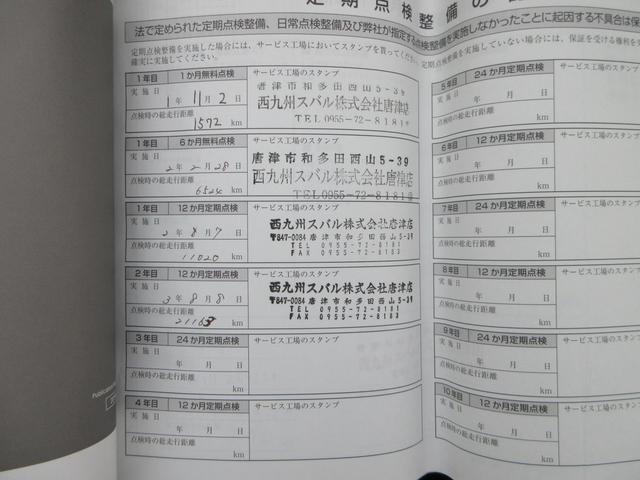 定期点検整備の
法で定められた定期点検整備、日常点検整備及び弊社が指定する点検整備を実施しなかったことに起因する不具合は保
定期点検整備を実施した場合には、サービス工場においてスタンプを貰ってください。定期点検整備を実施していない場合には、保証を受ける権利を
確実に実施してください。
1年目 1か月無料点検 サービス工場のスタンプ
実施日 1年 11月 2日
点検時の総走行距離 1572 km
唐津市和多田西山5-39
西九州スバル株式会社唐津店
TEL 0955-72-8181㈹
1年目 6か月無料点検 サービス工場のスタンプ
実施日 2年 2月 28日
点検時の総走行距離 6524 km
唐津市和多田西山5-39
西九州スバル株式会社唐津店
TEL 0955-72-8181㈹
1年目 12か月定期点検 サービス工場のスタンプ
実施日 2年 8月 7日
点検時の総走行距離 11020 km
西九州スバル株式会社唐津店
〒847-0084 唐津市和多田西山5-39
TEL 0955-72-8181
FAX 0955-72-8183
2年目 12か月定期点検 サービス工場のスタンプ
実施日 3年 8月 8日
点検時の総走行距離 21163 km
西九州スバル株式会社唐津店
〒847-0084 唐津市和多田西山5-39
TEL 0955-72-8181
FAX 0955-72-8183
3年目 24か月定期点検 サービス工場のスタンプ
実施日 年 月 日
点検時の総走行距離 km
4年目 12か月定期点検 サービス工場のスタンプ
実施日 年 月 日
点検時の総走行距離 km
5年目 24か月定期点検
実施日 年 月 日
点検時の総走行距離 km
6年目 12か月定期点検
実施日 年 月 日
点検時の総走行距離 km
7年目 24か月定期点検
実施日 年 月 日
点検時の総走行距離 km
8年目 12か月定期点検
実施日 年 月 日
点検時の総走行距離 km
9年目 24か月定期点検
実施日 年 月 日
点検時の総走行距離 km
10年目 12か月定期点検
実施日 年 月 日
点検時の総走行距離 km